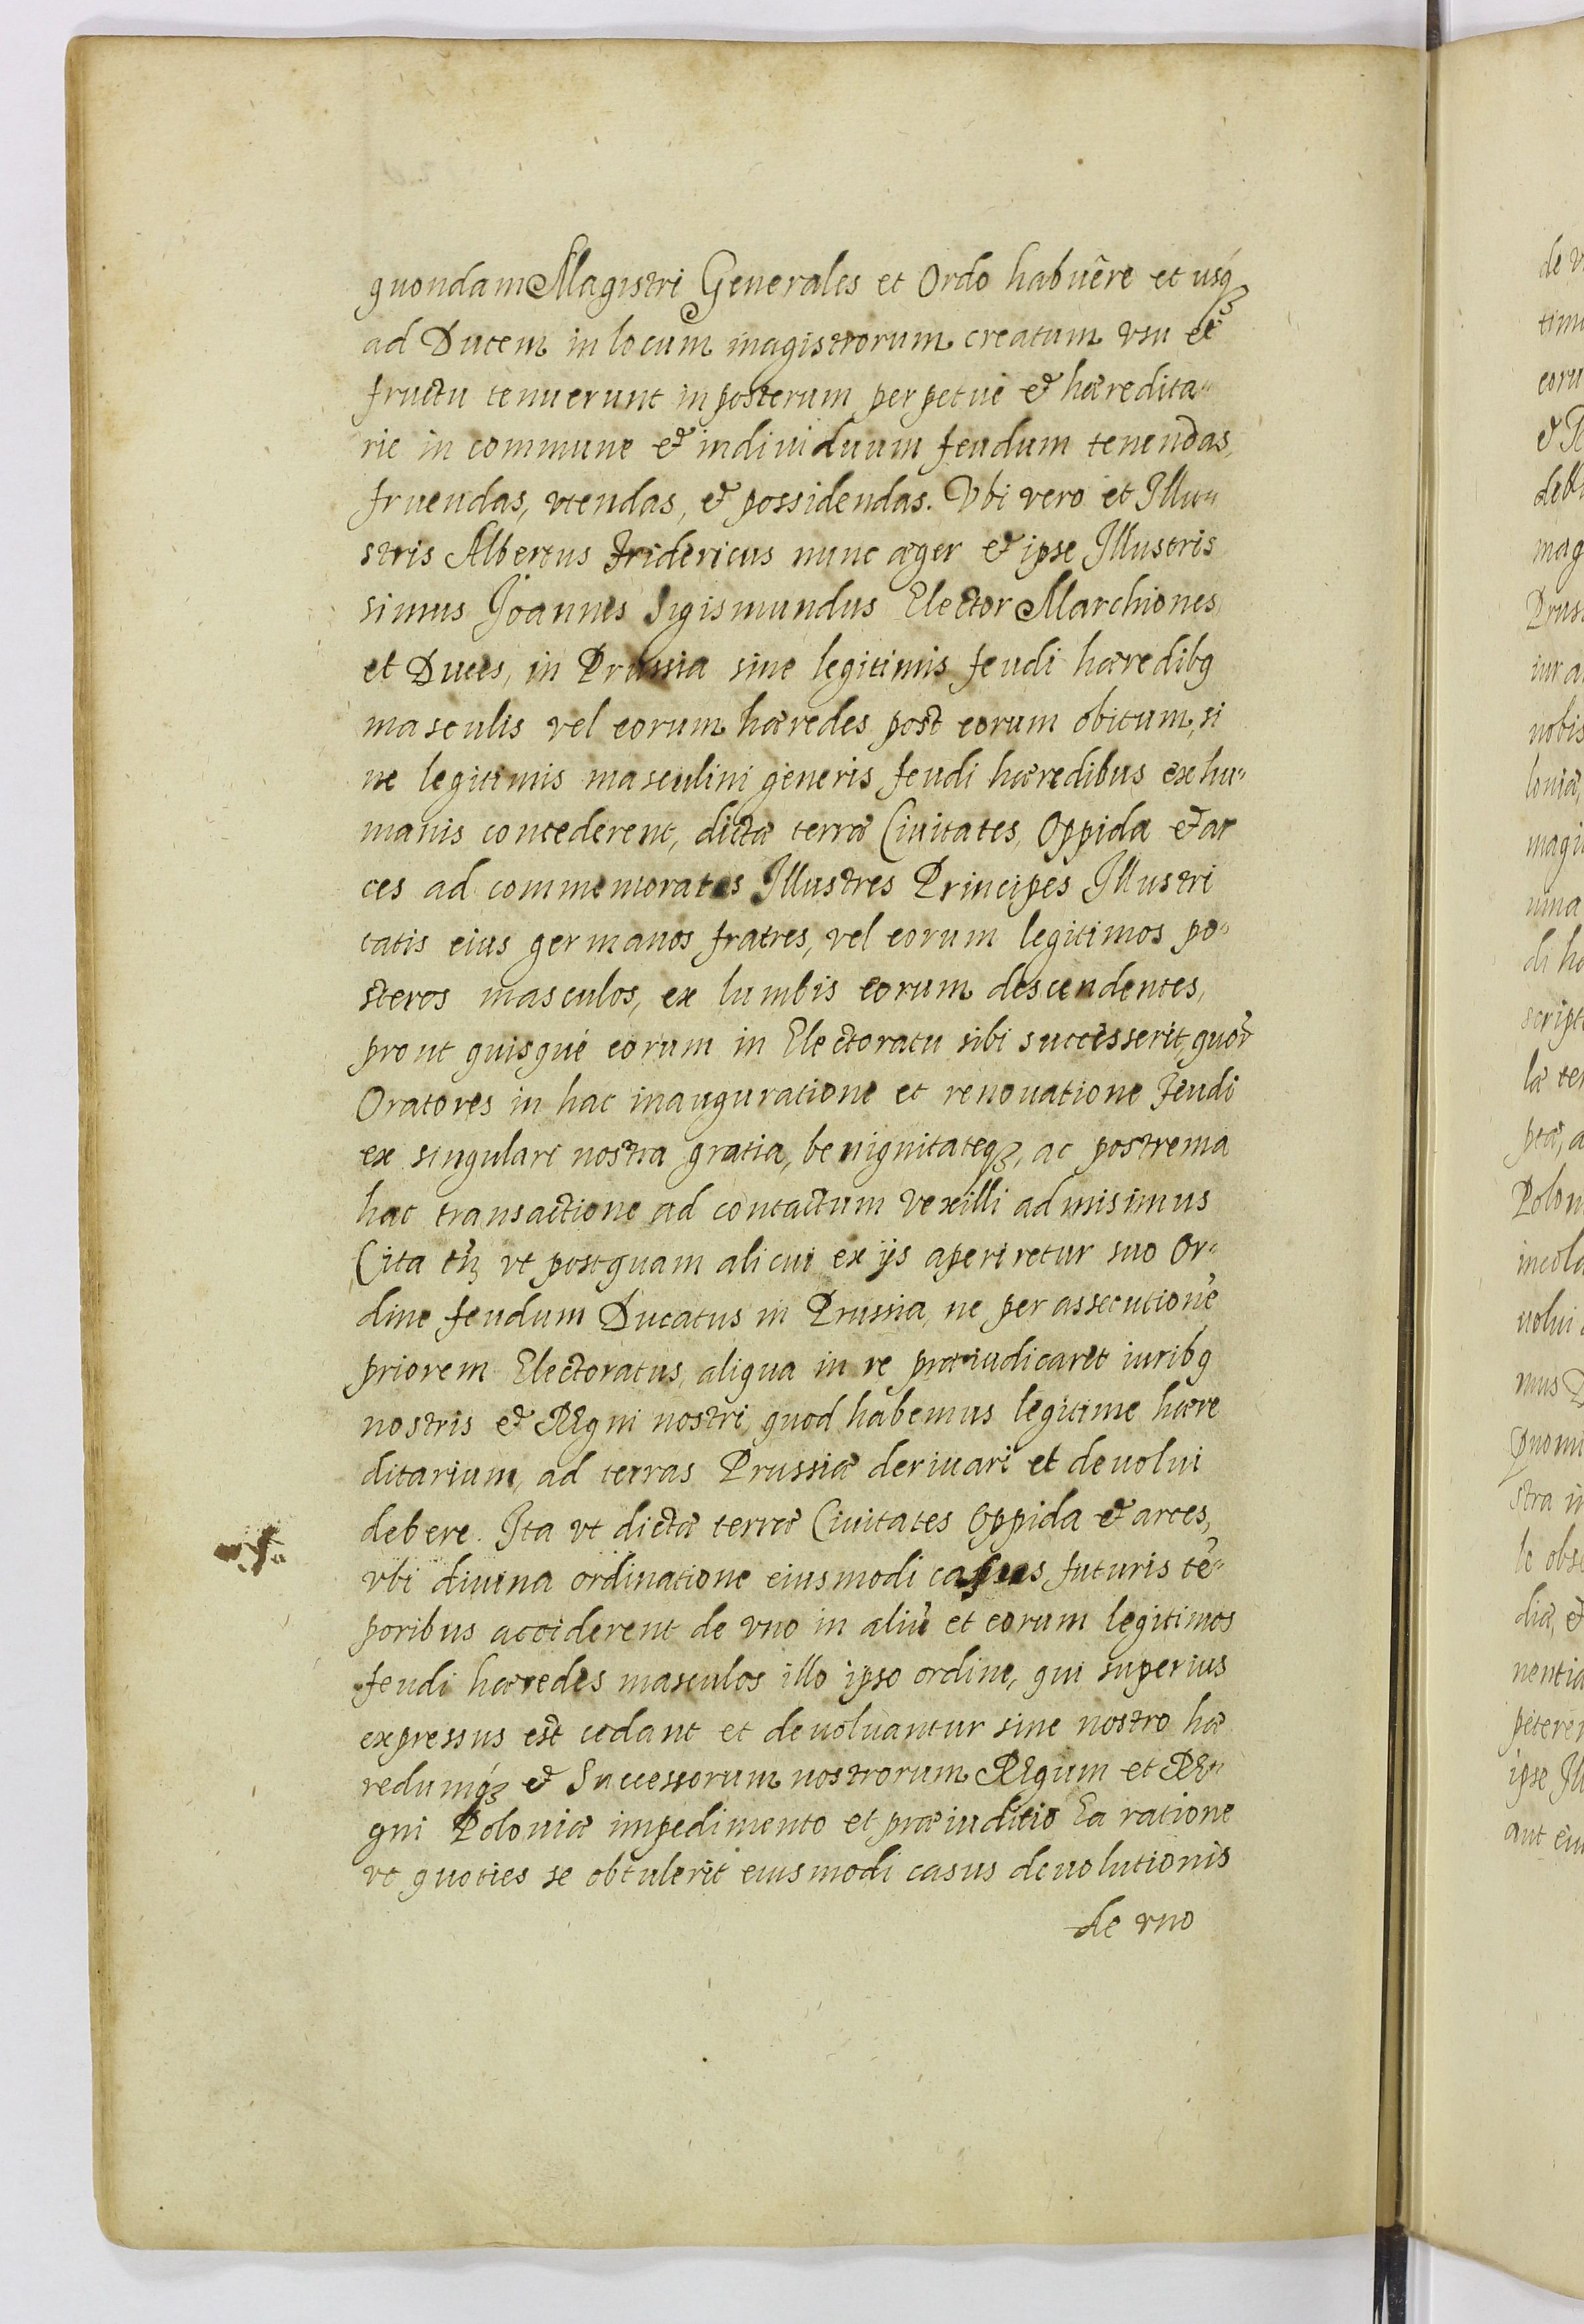 quondam Magistri Generales et Ordo habuêre et usq́ꝫ
ad Ducem in locum magistrorum creatum vsu et
fructu tenuerunt in posterum perpetue & hæredita„
rie in commune & indiuiduum feudum tenendas,
fruendas, vtendas, & possidendas. Vbi vero et Illu„
stris Albertus Fridericus nunc æger & ipse Illustris
simus Joannes Sigismundus Elector Marchiones
et Duces, in Prussia sine legitimis feudi hæredibꝰ
masculis vel eorum hæredes post eorum obitum, si
ne legitimis masculini generis feudi hæredibus ex hu„
manis concederent, dictæ terræ Ciuitates, Oppida & ar
ces ad commemoratos Illustres Principes Illustri
tatis eius germanos fratres, vel eorum legitimos po„
steros masculos, ex lumbis eorum descendentes,
prout quisqué eorum in Electoratu sibi successerit, quor̃
Oratores in hac inauguratione et renouatione Feudi
ex singulari nostra gratia, benignitateqꝫ, ac postrema
hac transactione ad contactum vexilli admisimus
(ita tñ vt postquam alicui ex ijs aperiretur suo Or„
dine feudum Ducatus in Prussia, ne per assecutionẽ
priorem Electoratus, aliqua in re præiudicaret iuribꝰ
nostris & Regni nostri, quod habemus legitime hære
ditarium, ad terras Prussiæ deriuari et deuolui
debere. Ita vt dictæ terræ Ciuitates Oppida & arces,
vbi diuina ordinatione eiusmodi casus futuris tẽ„
poribus acciderent de vno in aliũ et eorum legitimos
feudi hæredes masculos illo ipso ordine, qui superius
expressus est cedant et deuoluantur sine nostro hæ
redumq́ꝫ & Successorum nostrorum Regum et Re„
gni Poloniæ impedimento et præiuditio Ea ratione
vt quoties se obtulerit eiusmodi casus deuolutionis
de vno
de v
timo
eoru
& R
deb
mag
Prus
iura
nobis
loniæ,
magi
uina
di hæ
script
læ ter
ptæ, a
Polon
incola
uolui
mus D
stra in
le obse
diæ, &
nentia
peteren
ipse Ill
aut eiu